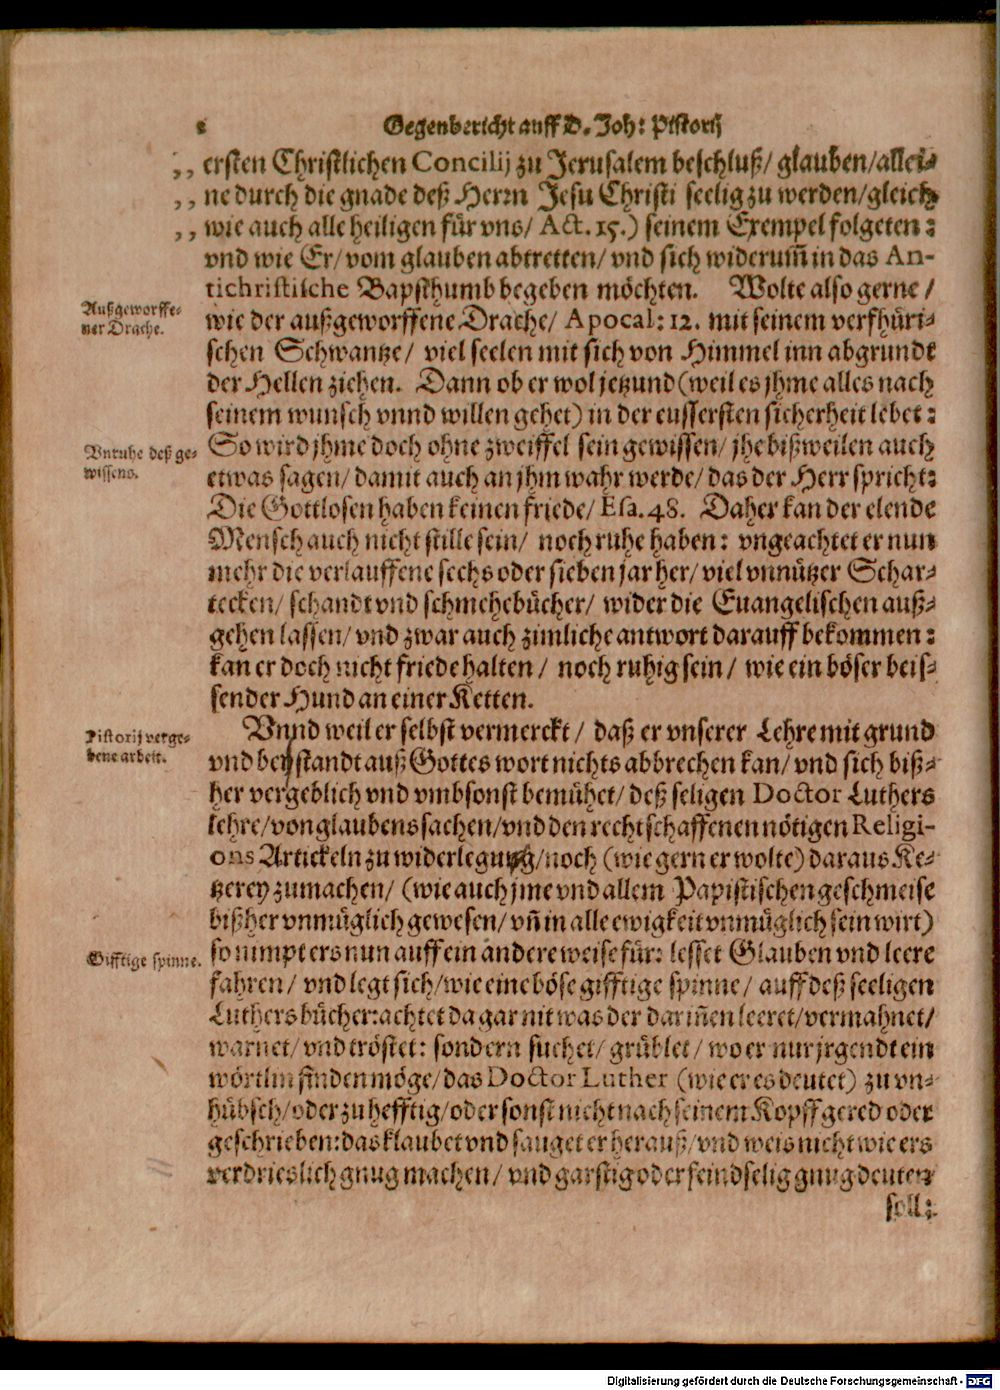 Gegenbericht auff D. Joh: Pistorij
„ ersten Christlichen Concilij zu Jerusalem beschluß/ glauben/ allei⸗
„ ne durch die gnade deß Herrn Jesu Christi seelig zu werden/ gleich
„ wie auch alle heiligen für vns/ Act. 15.) seinem Exempel folgeten:
vnd wie Er/ vom glauben abtretten/ vnd sich widerum̃ in das An-
tichristische Bapsthumb begeben möchten. Wolte also gerne/
Außgeworffe⸗
ner Drache.
wie der außgeworffene Drache/ Apocal: 12. mit seinem verfhüri⸗
schen Schwantze/ viel seelen mit sich von Himmel inn abgrundt
der Hellen ziehen. Dann ob er wol jetzund (weil es jhme alles nach
seinem wunsch vnnd willen gehet) in der eussersten sicherheit lebet:
Vnruhe deß ge⸗
wissens.
So wird jhme doch ohne zweiffel sein gewissen/ jhe bißweilen auch
etwas sagen/ damit auch an jhm wahr werde/ das der Herr spricht:
Die Gottlosen haben keinen friede/ Esa. 48. Daher kan der elende
Mensch auch nicht stille sein/ noch ruhe haben: vngeachtet er nun
mehr die verlauffene sechs oder sieben jar her/ viel vnnützer Schar⸗
tecken/ schandt vnd schmehebücher/ wider die Euangelischen auß⸗
gehen lassen/ vnd zwar auch zimliche antwort darauff bekommen:
kan er doch nicht friede halten/ noch ruhig sein/ wie ein böser beis⸗
sender Hund an einer Ketten.
Pistorij verge⸗
bene arbeit.
Vnnd weil er selbst vermerckt/ daß er vnserer Lehre mit grund
vnd beystandt auß Gottes wort nichts abbrechen kan/ vnd sich biß⸗
her vergeblich vnd vmbsonst bemühet/ deß seligen Doctor Luthers
lehre/ von glaubens sachen/ vnd den rechtschaffenen nötigen Religi-
ons Artickeln zu widerlegung/ noch (wie gern er wolte) daraus Ke⸗
tzerey zumachen/ (wie auch jme vnd allem Papistischen geschmeise
bißher vnmüglich gewesen/ vñ in alle ewigkeit vnmüglich sein wirt)
Gifftige spinne.
so nimpt ers nun auff ein andere weise für: lesset Glauben vnd leere
fahren/ vnd legt sich/ wie eine böse gifftige spinne/ auff deß seeligen
Luthers bücher: achtet da gar nit was der dariñen leeret/ vermahnet/
warnet/ vnd tröstet: sondern suchet/ grüblet/ wo er nur jrgendt ein
wörtlin finden möge/ das Doctor Luther (wie er es deutet) zu vn⸗
hübsch/ oder zu hefftig/ oder sonst nicht nach seinem Kopff gered oder
geschrieben: das klaubet vnd sauget er herauß/ vnd weis nicht wie ers
verdrieslich gnug machen/ vnd garstig oder feindselig gnug deuten
soll:
Digitalisierung gefördert durch die Deutsche Forschungsgemeinschaft - DFG